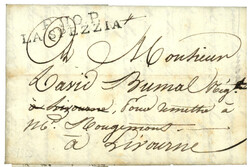 LA SPEZZIA
A Monsieur
David Bumal Neg.t
à Livourne, pour remettre à
M.r Rougemont
à Livourne